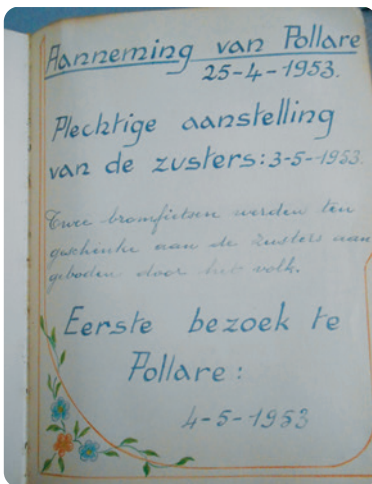 Aanneming van Pollare
25-4-1953.
Plechtige aanstelling
van de zusters: 3-5-1953.
Twee bromfietsen werden ten
geschenke aan de zusters aan
geboden door het volk.
Eerste bezoek te
Pollare:
4-5-1953